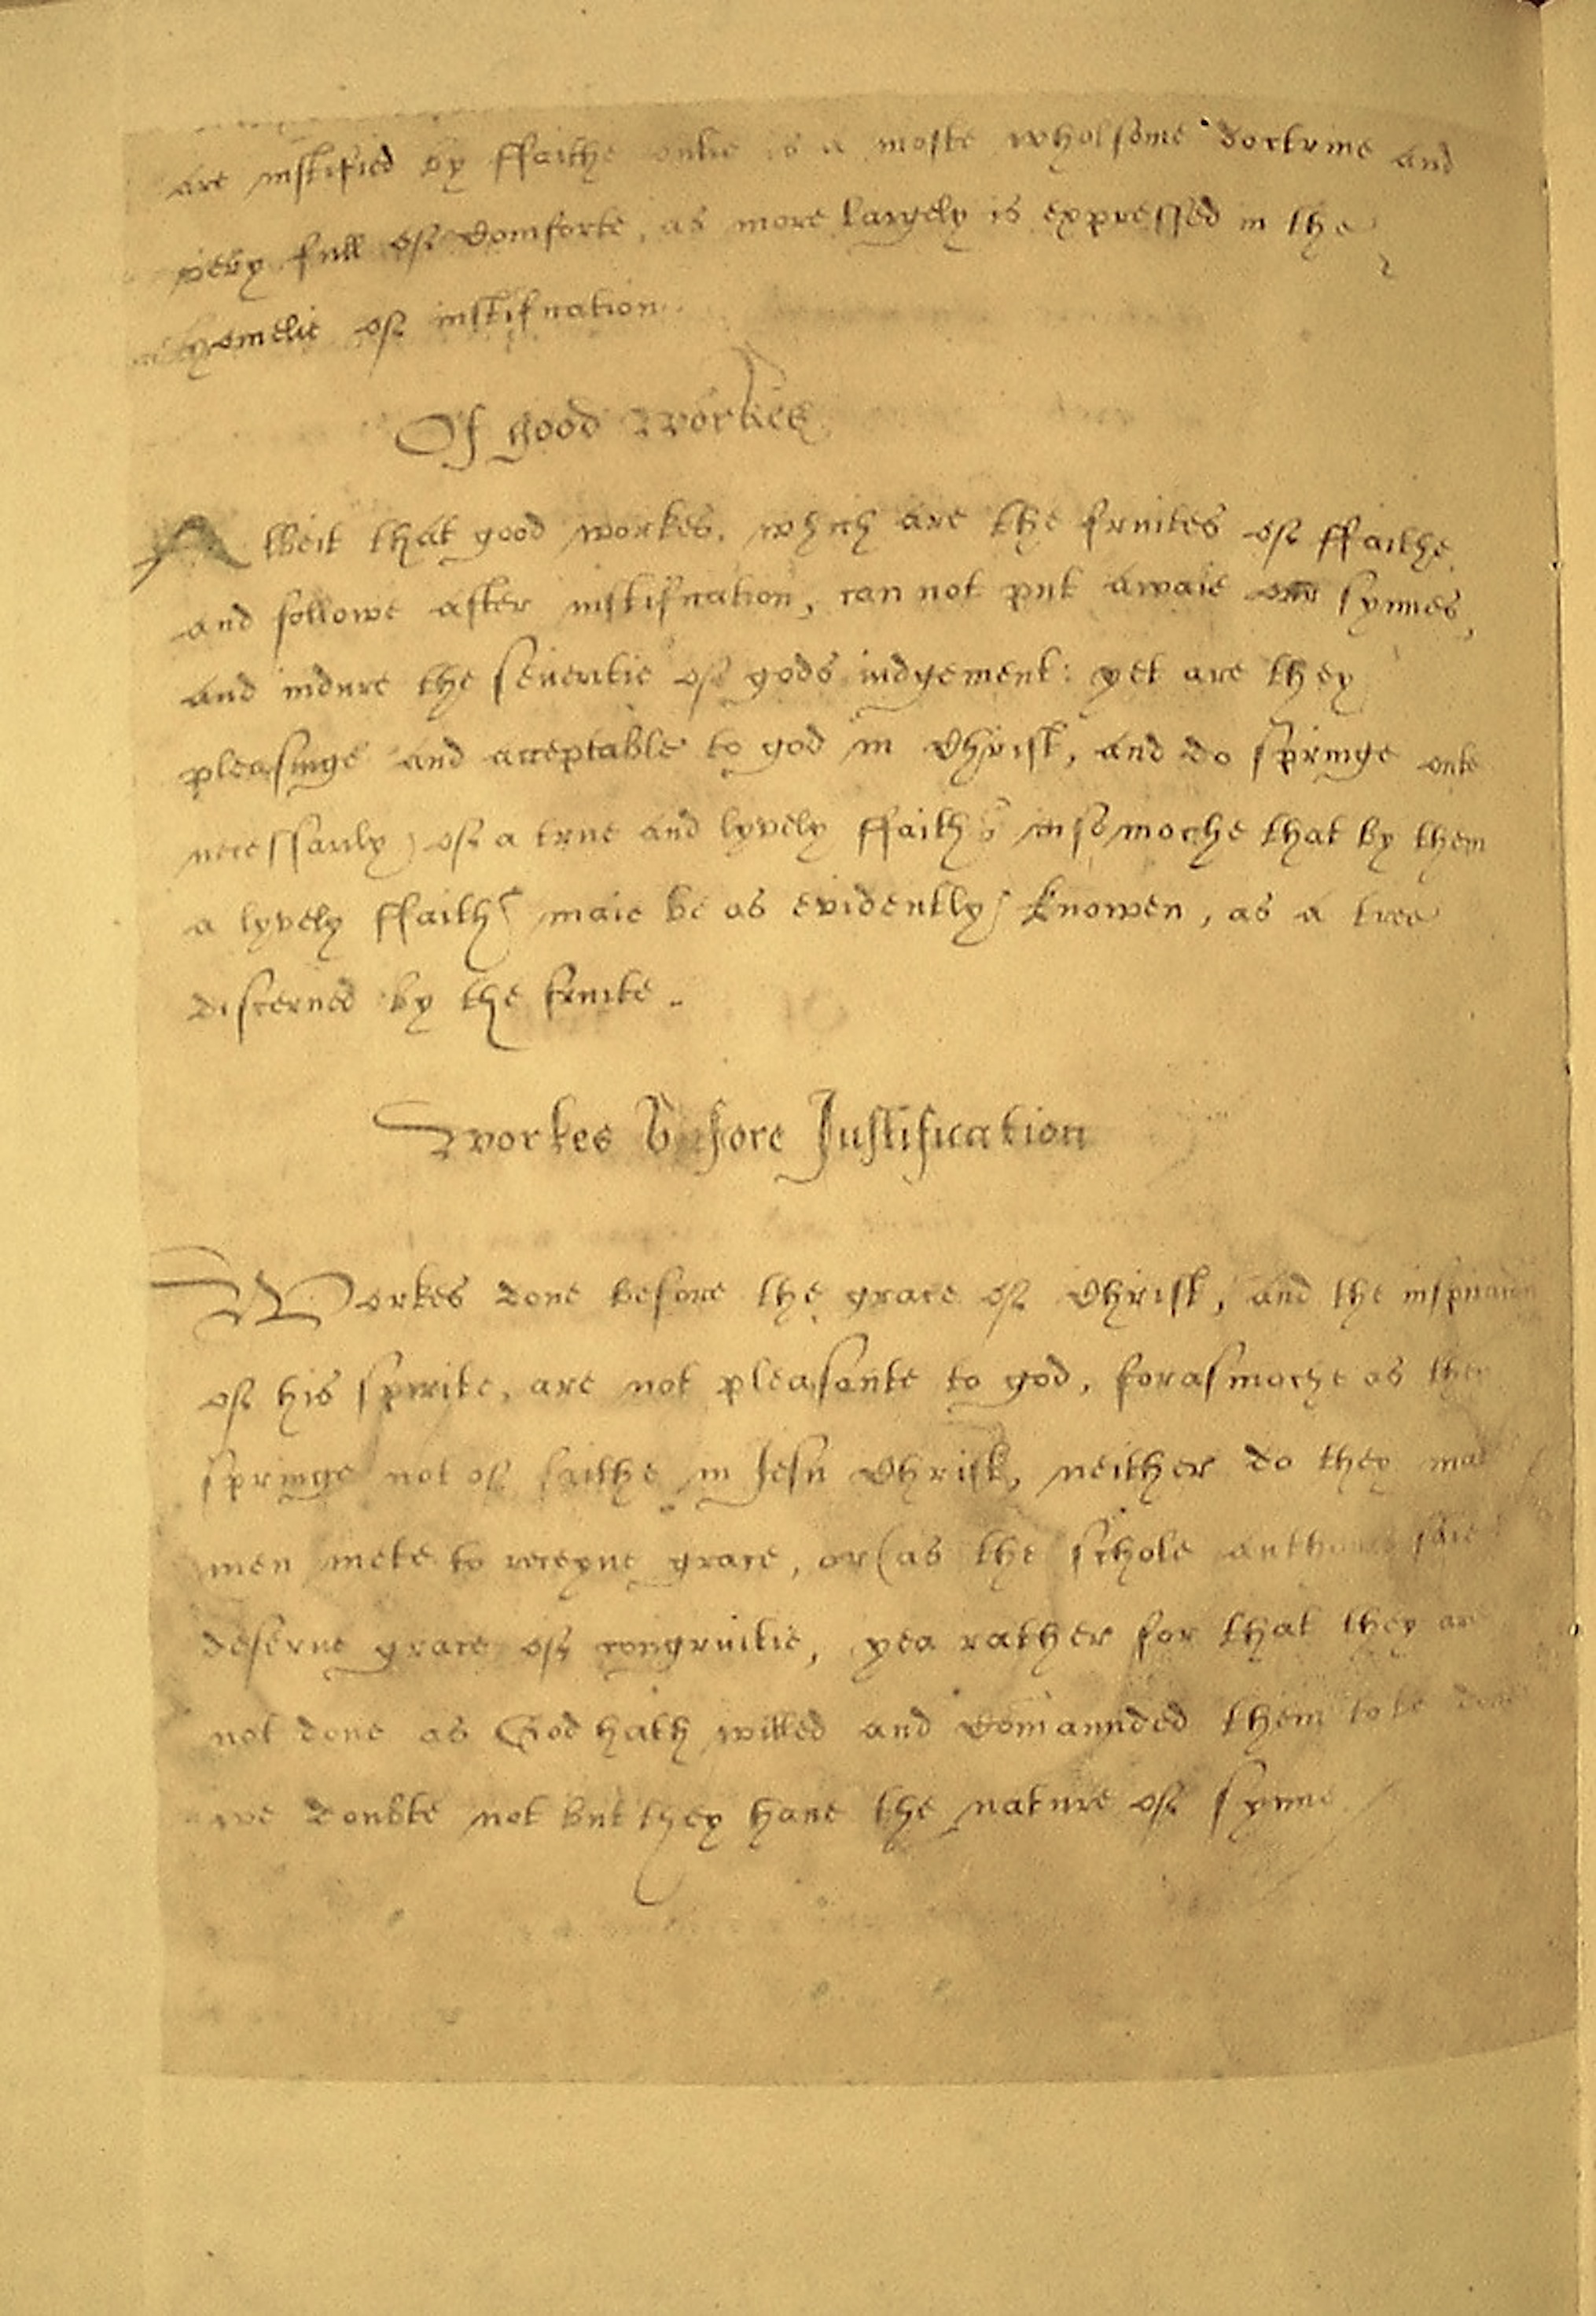 are iustified by ffaithe onlie is a moste wholsome doctrine and
very full of Comforte, as more largely is expressed in the
homelie of iustification.
Of good workes
Albeit that good workes, which are the fruites of ffaithe
and followe after iustification, can not put awaie our synnes,
and indure the seueritie of gods iudgement: yet are they
pleasinge and acceptable to god in Christ, and do springe oute
necessarily of a true and lyvely ffaithe insomoche that by them
a lyvely ffaithe maie be as evidently knowen, as a tree
discerned by the fruite.
Workes before Justification
Workes done before the grace of Christ, and the inspiration
of his spirite, are not pleasante to god, forasmoche as they
springe not of faithe in Jesu Christ, neither do they make
men mete to receyue grace, or (as the schole authours saie
deserue grace of congruitie, yea rather for that they are
not done as God hath willed and Commaunded them to be done
we doubte not but they haue the nature of synne